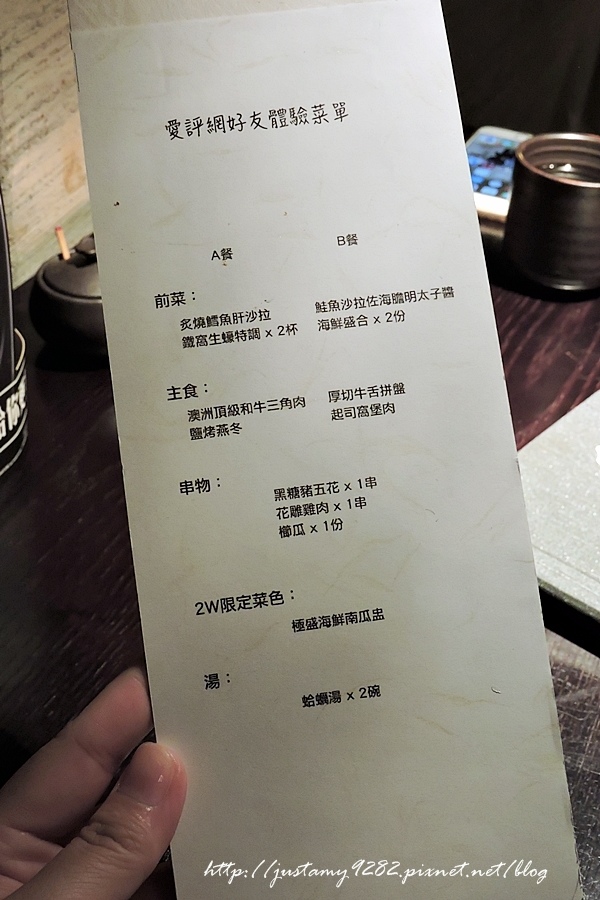 愛評網好友體驗菜單
A餐 B餐
前菜：
炙燒鱈魚肝沙拉 鮭魚沙拉佐海膽明太子醬
鐵窩生蠔特調 x 2杯 海鮮盛合 x 2份
主食：
澳洲頂級和牛三角肉 厚切牛舌拼盤
鹽烤燕冬 起司窩堡肉
串物：
黑糖豬五花 x 1串
花雕雞肉 x 1串
櫛瓜 x 1份
2W限定菜色：
極盛海鮮南瓜盅
湯：
蛤蠣湯 x 2碗
http://justamy9282.pixnet.net/blog